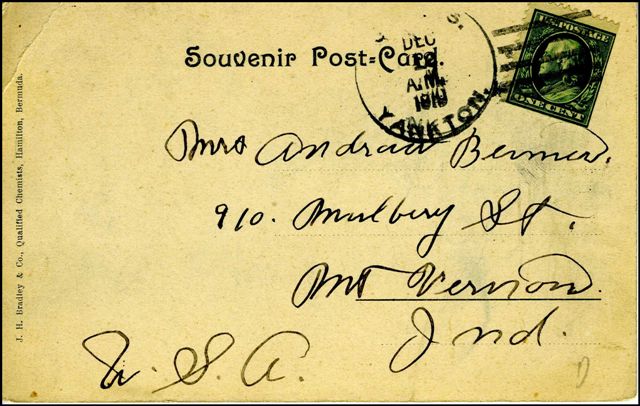 Souvenir Post-Card.
U.S.
DEC
A.M.
1910
YANKTON
U.S. POSTAGE
ONE CENT
Mrs Andrew
910. Mulbery St.
Mt Vernon.
Ind.
U. S. A.
J. H. Bradley & Co., Qualified Chemists, Hamilton, Bermuda.
D